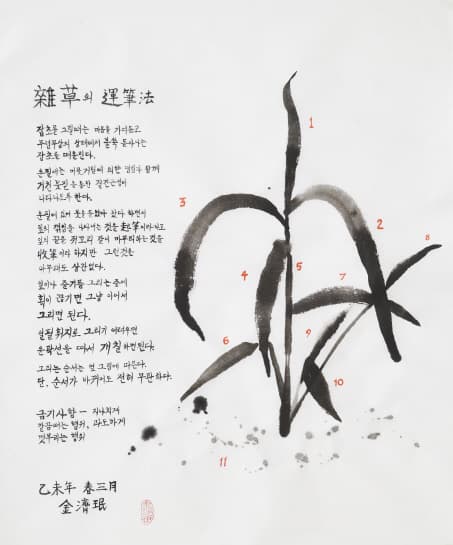 雜草의 運筆法
잡초를 그릴때는 마음을 가다듬고
무념무상의 상태에서 불쑥 돋아나는
잡초를 떠올린다.
운필에는 머뭇거림에 의한 멈춤과 함께
거친 붓질을 통한
나타나도록 한다.
운필이 쉽게 붓을
잎의 꺾임을 나타내는 것을 起筆이라하고
잎의 끝을 쥐꼬리 같이 마무리하는것을
收筆이라 하지만 그런것은
아무래도 상관없다.
잎이나 줄기를 그리는 중에
획이 끊기면 그냥 이어서
그리면 된다.
일필휘지로 그리기 어려우면
윤곽선을 따서 개칠하면된다.
그리는 순서는 옆 그림에 따른다.
단, 순서가 바뀌어도 전혀 무관하다.
금기사항 — 지나치게
깔끔떠는 행위, 과도하게
멋부리는 행위
乙未年 春三月
金濟珉
1
2
3
4
5
6
7
8
9
10
11